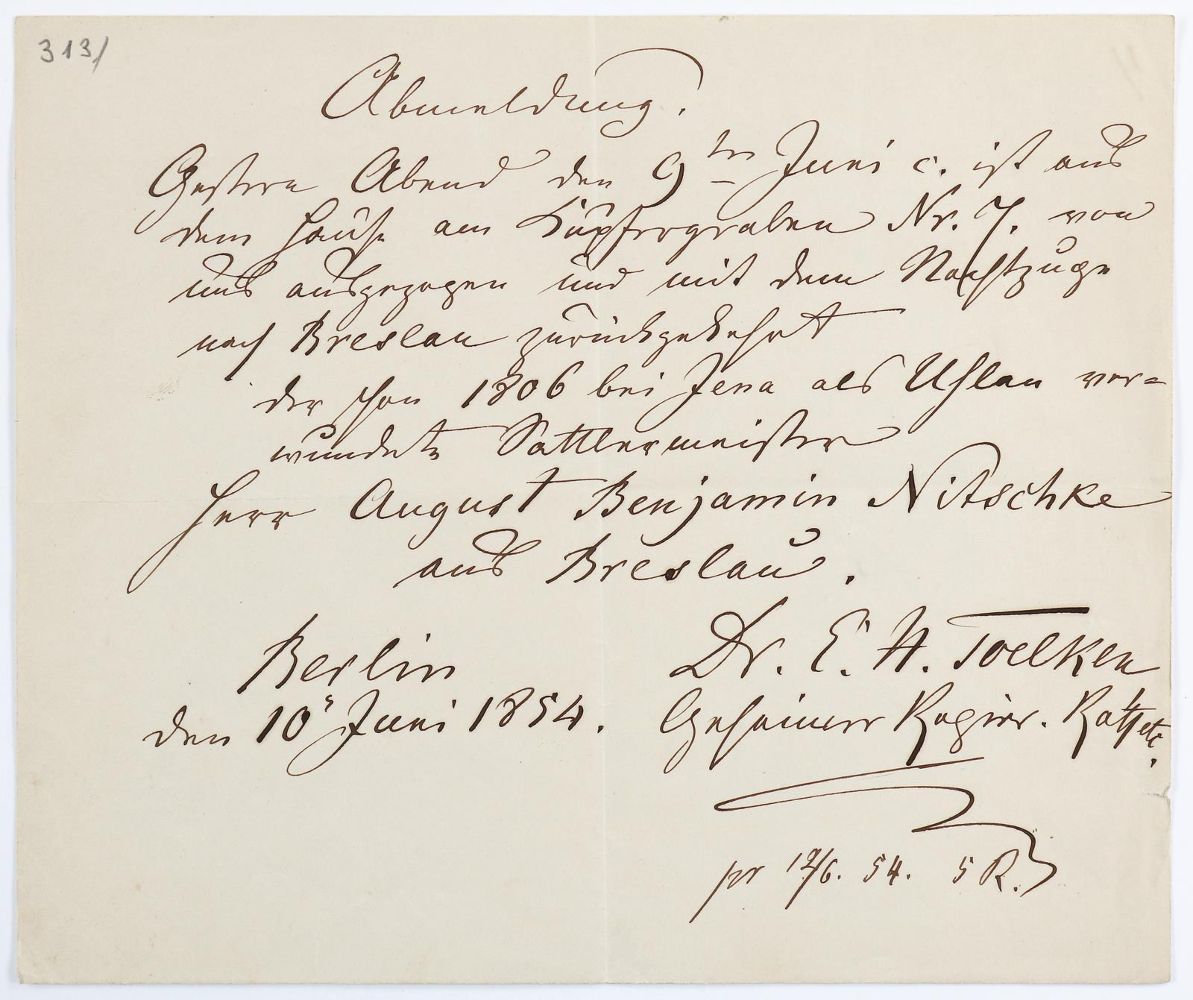 313/
Abmeldung.
Gestern Abend den 9ten Juni c. ist aus
dem Hause am Kupfergraben Nr. 7. von
uns ausgezogen und mit dem Nachtzuge
nach Breslau zurückgekehrt
der schon 1806 bei Jena als Uhlan ver=
wundete Sattlermeister
Herr August Benjamin Nitschke
aus Breslau.
Berlin
den 10 Juni 1854.
Dr. E. H. Toelken
Geheimer Regier. Rath etc.
pr 12/6. 54. 5 R.